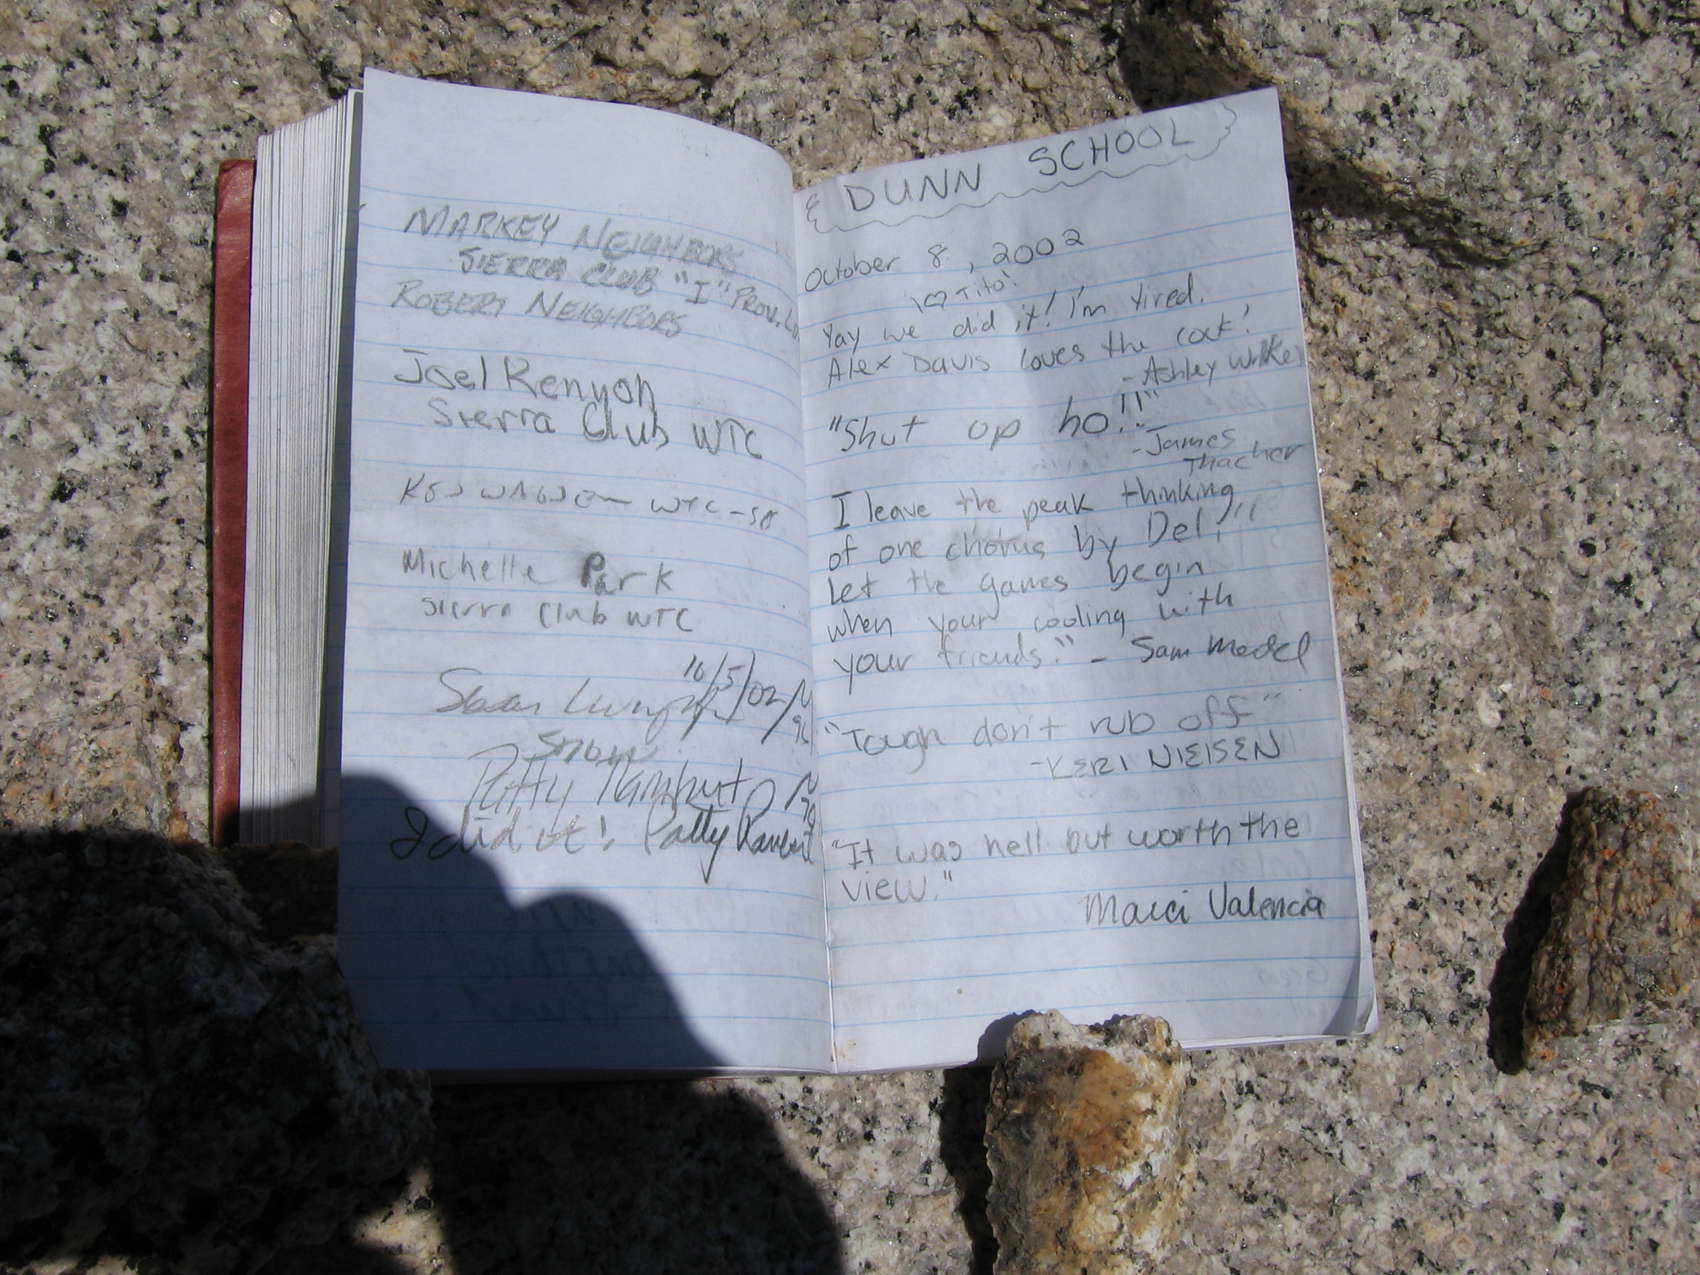 MARKEY NEIGHBORS
SIERRA CLUB "I" PROV.
ROBERT NEIGHBORS
Joel Kenyon
Sierra Club WTC
WTC
Michelle Park
Sierra Club WTC
10/5/02
Snow
Patty
I did it! Patty
DUNN SCHOOL
October 8, 2002
I ♡ Tito!
Yay we did it! I'm tired.
Alex Davis loves the cock!
- Ashley Walker
"Shut up ho!!"
- James
Thacher
I leave the peak thinking
of one chorus by Del, "
let the games begin
when your cooling with
your friends." - Sam Medel
"Tough don't rub off"
- KERI NIELSEN
"It was hell but worth the
view."
Marci Valencia